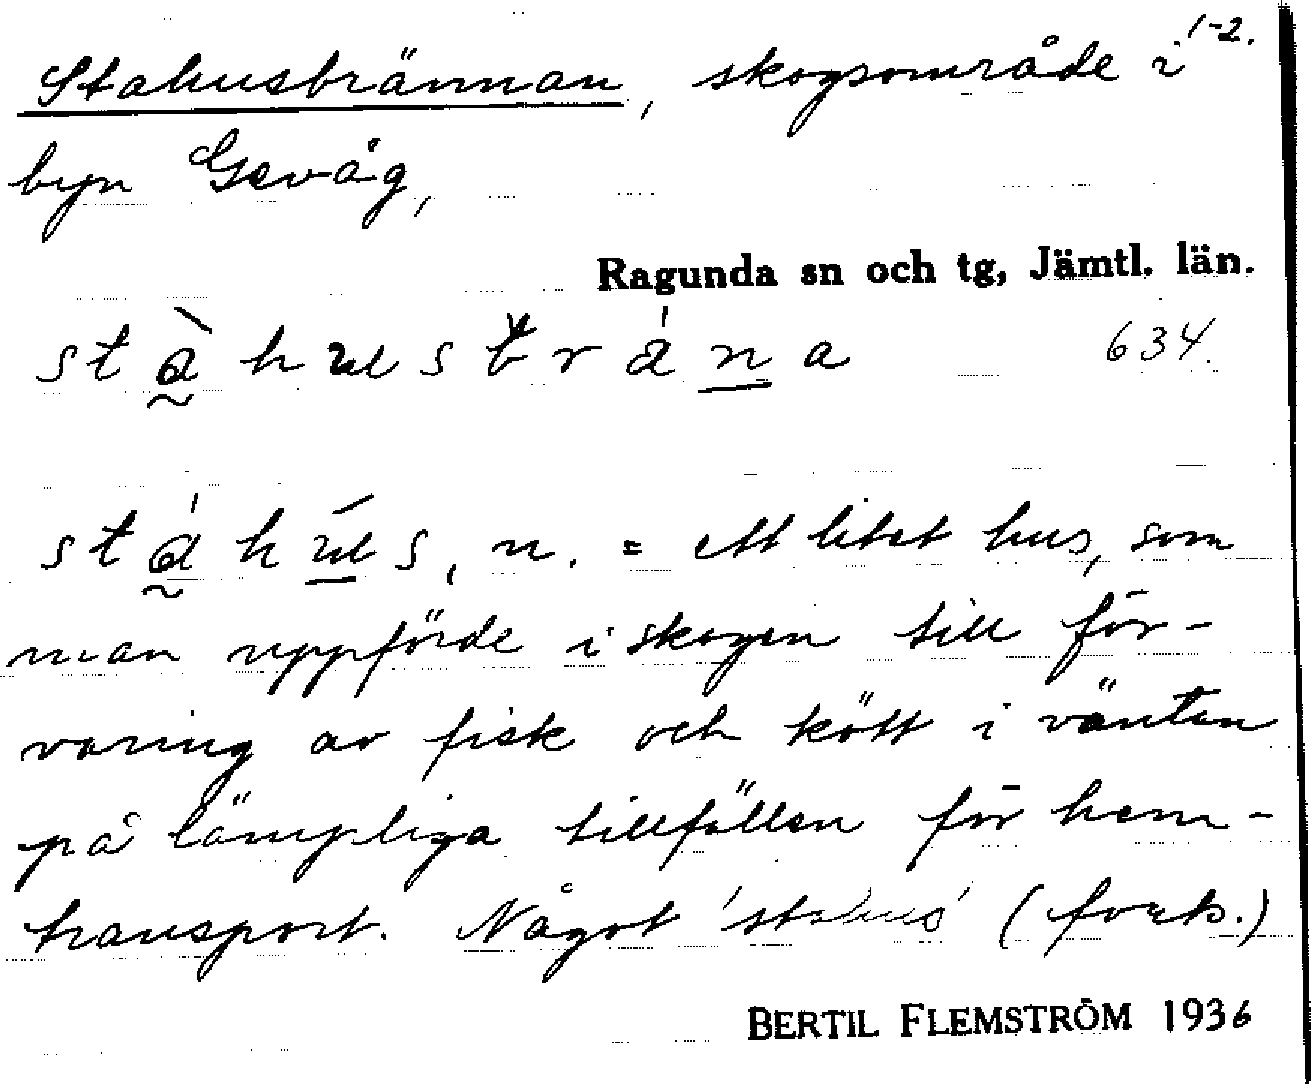 1-2.
Stahusbrännan, skogsområde i
byn Gevåg,
Ragunda sn och tg, Jämtl. län.
634.
n. = ett litet hus, som
man uppförde i skogen till för-
varing av fisk och kött i väntan
på lämpliga tillfällen för hem-
transport. Något 'stahus' (forts.)
BERTIL FLEMSTRÖM 1936